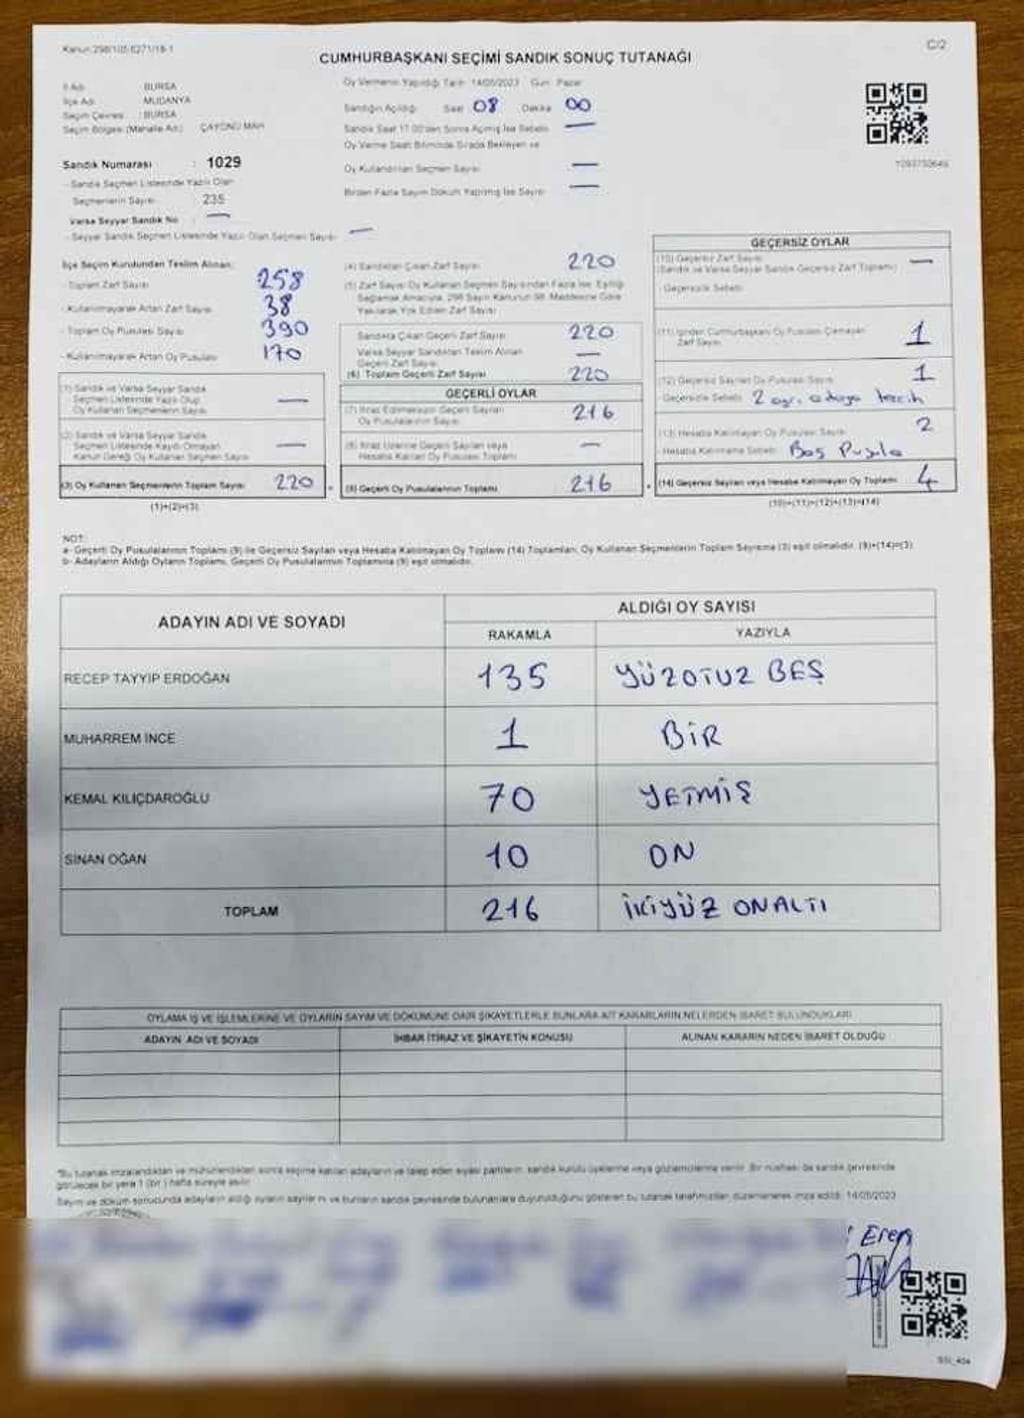 Kanun:298/105-6271/18-1
C/2
CUMHURBAŞKANI SEÇİMİ SANDIK SONUÇ TUTANAĞI
İl Adı : BURSA
İlçe Adı : MUDANYA
Seçim Çevresi : BURSA
Seçim Bölgesi (Mahalle Adı) : ÇAYÖNÜ MAH.
Sandık Numarası : 1029
- Sandık Seçmen Listesinde Yazılı Olan
Seçmenlerin Sayısı : 235
Varsa Seyyar Sandık No : —
- Seyyar Sandık Seçmen Listesinde Yazılı Olan Seçmen Sayısı : —
Oy Vermenin Yapıldığı Tarih: 14/05/2023 Gün: Pazar
Sandığın Açıldığı Saat 08 Dakika 00
Sandık Saat 17.00'den Sonra Açılmış İse Sebebi —
Oy Verme Saati Bitiminde Sırada Bekleyen ve
Oy Kullandırılan Seçmen Sayısı —
Birden Fazla Sayım Döküm Yapılmış İse Sayısı —
İlçe Seçim Kurulundan Teslim Alınan:
- Toplam Zarf Sayısı 258
- Kullanılmayarak Artan Zarf Sayısı 38
- Toplam Oy Pusulası Sayısı 390
- Kullanılmayarak Artan Oy Pusulası 170
(1) Sandık ve Varsa Seyyar Sandık
Seçmen Listesinde Yazılı Olup
Oy Kullanan Seçmenlerin Sayısı —
(2) Sandık ve Varsa Seyyar Sandık
Seçmen Listesinde Kaydı Olmayan
Kanun Gereği Oy Kullanan Seçmen Sayısı —
(3) Oy Kullanan Seçmenlerin Toplam Sayısı 220
(1)+(2)=(3)
(4) Sandıktan Çıkan Zarf Sayısı 220
(5) Zarf Sayısı Oy Kullanan Seçmen Sayısından Fazla İse, Eşitliği
Sağlamak Amacıyla, 298 Sayılı Kanunun 98. Maddesine Göre
Yakılarak Yok Edilen Zarf Sayısı
Sandıkta Çıkan Geçerli Zarf Sayısı 220
Varsa Seyyar Sandıktan Teslim Alınan
Geçerli Zarf Sayısı —
(6) Toplam Geçerli Zarf Sayısı 220
GEÇERLİ OYLAR
(7) İtiraz Edilmeksizin Geçerli Sayılan
Oy Pusulalarının Sayısı 216
(8) İtiraz Üzerine Geçerli Sayılan veya
Hesaba Katılan Oy Pusulası Toplamı —
(9) Geçerli Oy Pusulalarının Toplamı 216
GEÇERSİZ OYLAR
(10) Geçersiz Zarf Sayısı
(Sandık ve Varsa Seyyar Sandık Geçersiz Zarf Toplamı) —
- Geçersizlik Sebebi:
(11) İçinden Cumhurbaşkanı Oy Pusulası Çıkmayan
Zarf Sayısı 1
(12) Geçersiz Sayılan Oy Pusulası Sayısı 1
- Geçersizlik Sebebi: 2 ayrı adaya tercih
(13) Hesaba Katılmayan Oy Pusulası Sayısı 2
- Hesaba Katılmama Sebebi: Boş Pusula
(14) Geçersiz Sayılan veya Hesaba Katılmayan Oy Toplamı 4
(10)+(11)+(12)+(13)=(14)
NOT:
a- Geçerli Oy Pusulalarının Toplamı (9) ile Geçersiz Sayılan veya Hesaba Katılmayan Oy Toplamı (14) Toplamları, Oy Kullanan Seçmenlerin Toplam Sayısına (3) eşit olmalıdır. (9)+(14)=(3)
b- Adayların Aldığı Oyların Toplamı, Geçerli Oy Pusulalarının Toplamına (9) eşit olmalıdır.
ADAYIN ADI VE SOYADI
ALDIĞI OY SAYISI
RAKAMLA YAZIYLA
RECEP TAYYİP ERDOĞAN 135 YÜZOTUZ BEŞ
MUHARREM İNCE 1 BİR
KEMAL KILIÇDAROĞLU 70 YETMİŞ
SİNAN OĞAN 10 ON
TOPLAM 216 İKİYÜZ ONALTI
OYLAMA İŞ VE İŞLEMLERİNE VE OYLARIN SAYIM VE DÖKÜMÜNE DAİR ŞİKAYETLERLE BUNLARA AİT KARARLARIN NELERDEN İBARET BULUNDUKLARI
ADAYIN ADI VE SOYADI İHBAR İTİRAZ VE ŞİKAYETİN KONUSU ALINAN KARARIN NEDEN İBARET OLDUĞU
*Bu tutanak imzalandıktan ve mühürlendikten sonra seçime katılan adayların ve talep eden siyasi partilerin, sandık kurulu üyelerine veya gözlemcilerine verilir. Bir nüshası da sandık çevresinde
görülecek bir yere 1 (bir) hafta süreyle asılır.
Sayım ve döküm sonucunda adayların aldığı oyların sayılarını ve bunların sandık çevresinde bulunanlara duyurulduğunu gösteren bu tutanak tarafımızdan düzenlenerek imza edildi. 14/05/2023
Eren